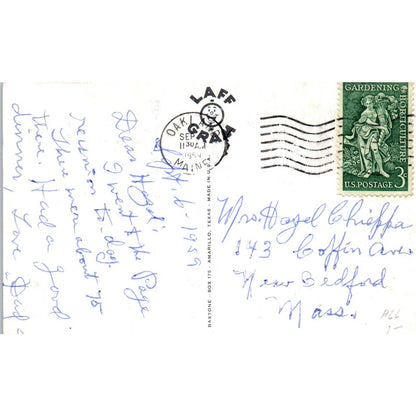 LAFF
GRAM
OAKLAND
SEP
1130AM
1959
MAINE
GARDENING
HORTICULTURE
U.S. POSTAGE 3¢
Sept 6-1959
Dear Hazel:
I went to the Page
reunion to-day.
There were about 75
there. Had a good
dinner, Love Dad
BASTONE - BOX 175 - AMARILLO, TEXAS - MADE IN U.S.A.
Mrs. Hazel Chioppa
243 Coffin Ave.
New Bedford
Mass.